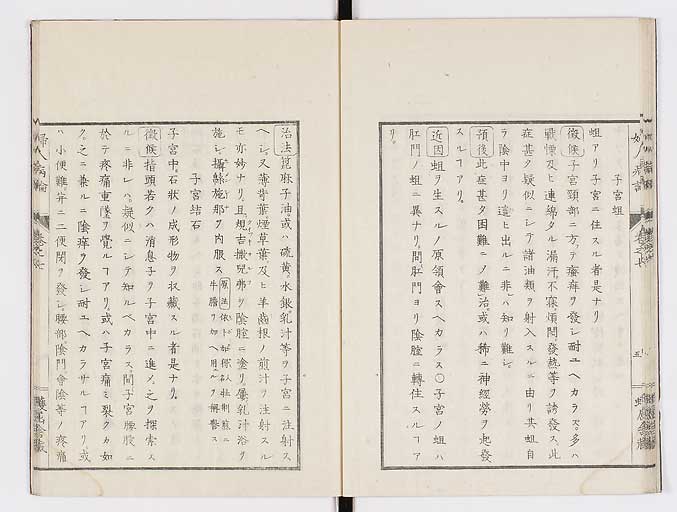 子宮蛆
蛆アリ子宮ニ住スル者是ナリ
徴候 子宮頸部ニ方テ瘙痒ヲ發シ耐ユヘカラス。多ハ
戰慄及ヒ連綿タル溺汗不寐煩悶發熱等ヲ誘發ス此
症甚タ疑似ニシテ諸油類ヲ射入スルニ由リ其蛆自
ラ陰中ヨリ這ヒ出ルニ非レハ知リ難シ
預後 此症甚タ困難ニノ難治或ハ稀ニ神經勞ヲ起發
スルヿアリ。
近因 蛆ヲ生スルノ原領會スヘカラス○子宮ノ蛆ハ
肛門ノ蛆ニ異ナリ。間肛門ヨリ陰腟ニ轉住スルヿア
リ。
治法 萞麻子油或ハ硫黄、水銀、乳汁等ヲ子宮ニ注射ス
ヘシ又薄荷葉煙草葉及ヒ羊齒根ノ煎汁ヲ注射スル
モ亦妙ナリ。且
ヲ陰腟ニ塗リ屢乳汁浴ヲ
施シ
ヲ内服ス
子宮結石
子宮中。石狀ノ成形物ヲ収藏スル者是ナリ。
徴候 指頭若クハ消息子ヲ子宮中ニ進メ。之ヲ探索ス
ルニ非レハ。疑似ニシテ知ルヘカラス間子宮腰股ニ
於テ疼痛重墜ヲ覺ルヿアリ。或ハ子宮痛ミ裂クカ如
ク。之ニ兼ルニ陰痒ヲ發シ耐ユヘカラサルヿアリ。或
ハ小便難并ニ二便閉ヲ發シ。腰部陰門會陰等ノ疼痛
婦人病論
卷之七